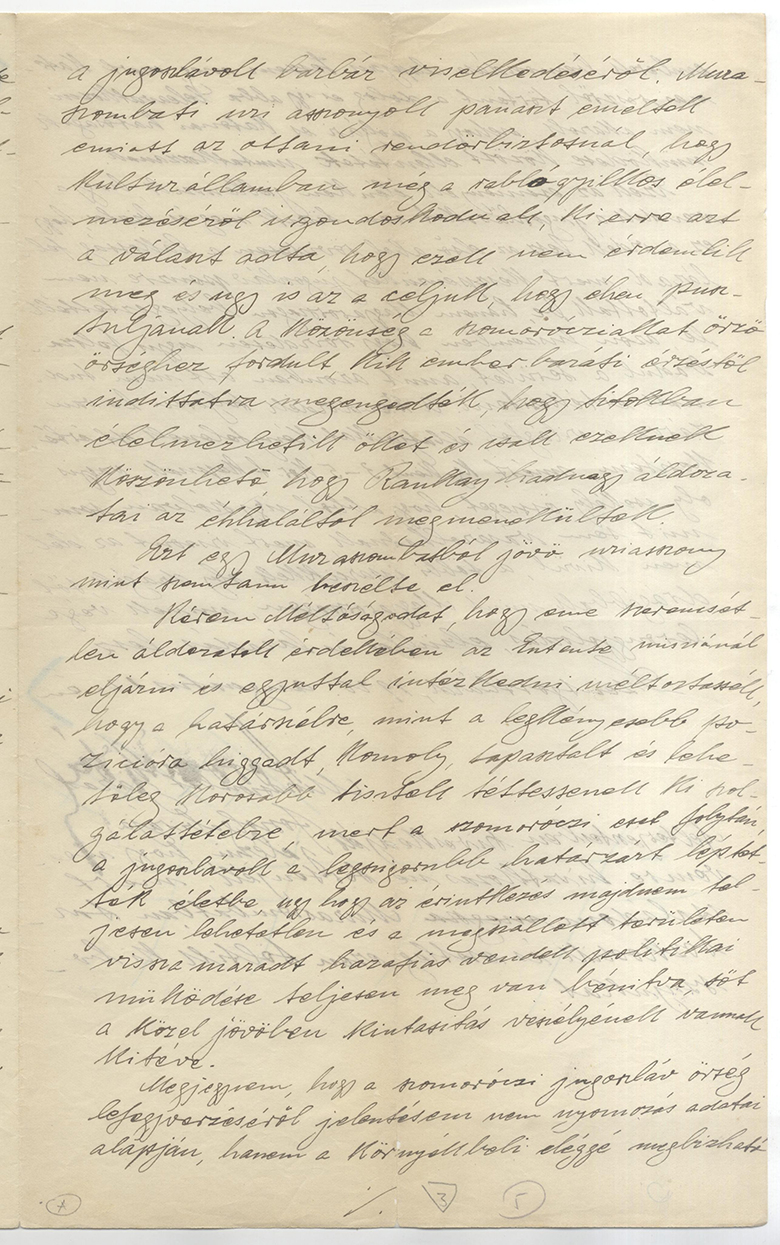 a jugoslávok barbár viselkedéséről. Mura-
szombati uri asszonyok panaszt emeltek
emiatt az ottani rendőrbiztosnál, hogy
kulturállamban még a rablógyilkos élel-
mezéséről is gondoskodnak, ki erre azt
a választ adta, hogy ezek nem érdemlik
meg és ugy is az a céljuk, hogy éhen pusz-
tuljanak. A közönség a szomorócziakat őrző
őrséghez fordult, kik ember baráti érzéstől
indittatva megengedték, hogy titokban
élelmezhetik őket és csak ezeknek
köszönhető, hogy Rankay hadnagy áldoza-
tai az éhhaláltól megmenekültek.
Ezt egy Muraszombatból jövő uriasszony
mint szemtanu beszélte el.
Kérem Méltóságodat, hogy eme szerencsét-
len áldozatok érdekében az Entente missiónál
eljárni és egyuttal intézkedni méltóztassék,
hogy a határszélre, mint a legkényesebb po-
zicióra higgadt, komoly, tapasztalt és lehe-
tőleg korosabb tisztek tétessenek ki szol-
gálattételre, mert a szomoróczi eset folytán
a jugoslávok a legszigorubb határzárt léptet-
ték életbe ugy hogy az érintkezés majdnem tel-
jesen lehetetlen és a megszállott területen
vissza maradt hazafias vendek politikai
működése teljesen meg van bénitva, sőt
a közel jövőben kiutasitás veszélyének vannak
kitéve.
Megjegyzem, hogy a szomoróczi jugoszláv őrség
lefegyverzéséről jelentésem nem nyomozás adatai
alapján, hanem a környékbeli eléggé megbizható
./.
3
5